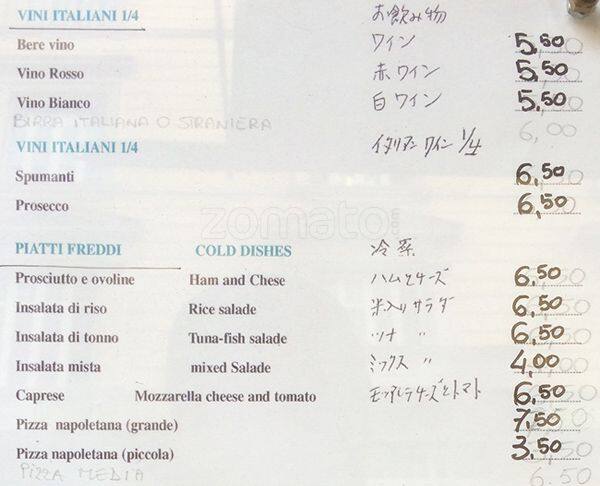 VINI ITALIANI 1/4 お飲み物
Bere vino ワイン 5,50
Vino Rosso 赤ワイン 5,50
Vino Bianco 白ワイン 5,50
BIRRA ITALIANA O STRANIERA 6,00
VINI ITALIANI 1/4 イタリアンワイン 1/4
Spumanti 6,50
Prosecco 6,50
zomato.com
PIATTI FREDDI COLD DISHES 冷系
Prosciutto e ovoline Ham and Chese ハムとチーズ 6,50
Insalata di riso Rice salade 米入りサラダ 6,50
Insalata di tonno Tuna-fish salade ツナ 〃 6,50
Insalata mista mixed Salade ミックス 〃 4,00
Caprese Mozzarella cheese and tomato モッツァレラチーズとトマト 6,50
Pizza napoletana (grande) 7,50
Pizza napoletana (piccola) 3,50
PIZZA MEDIA 6.50